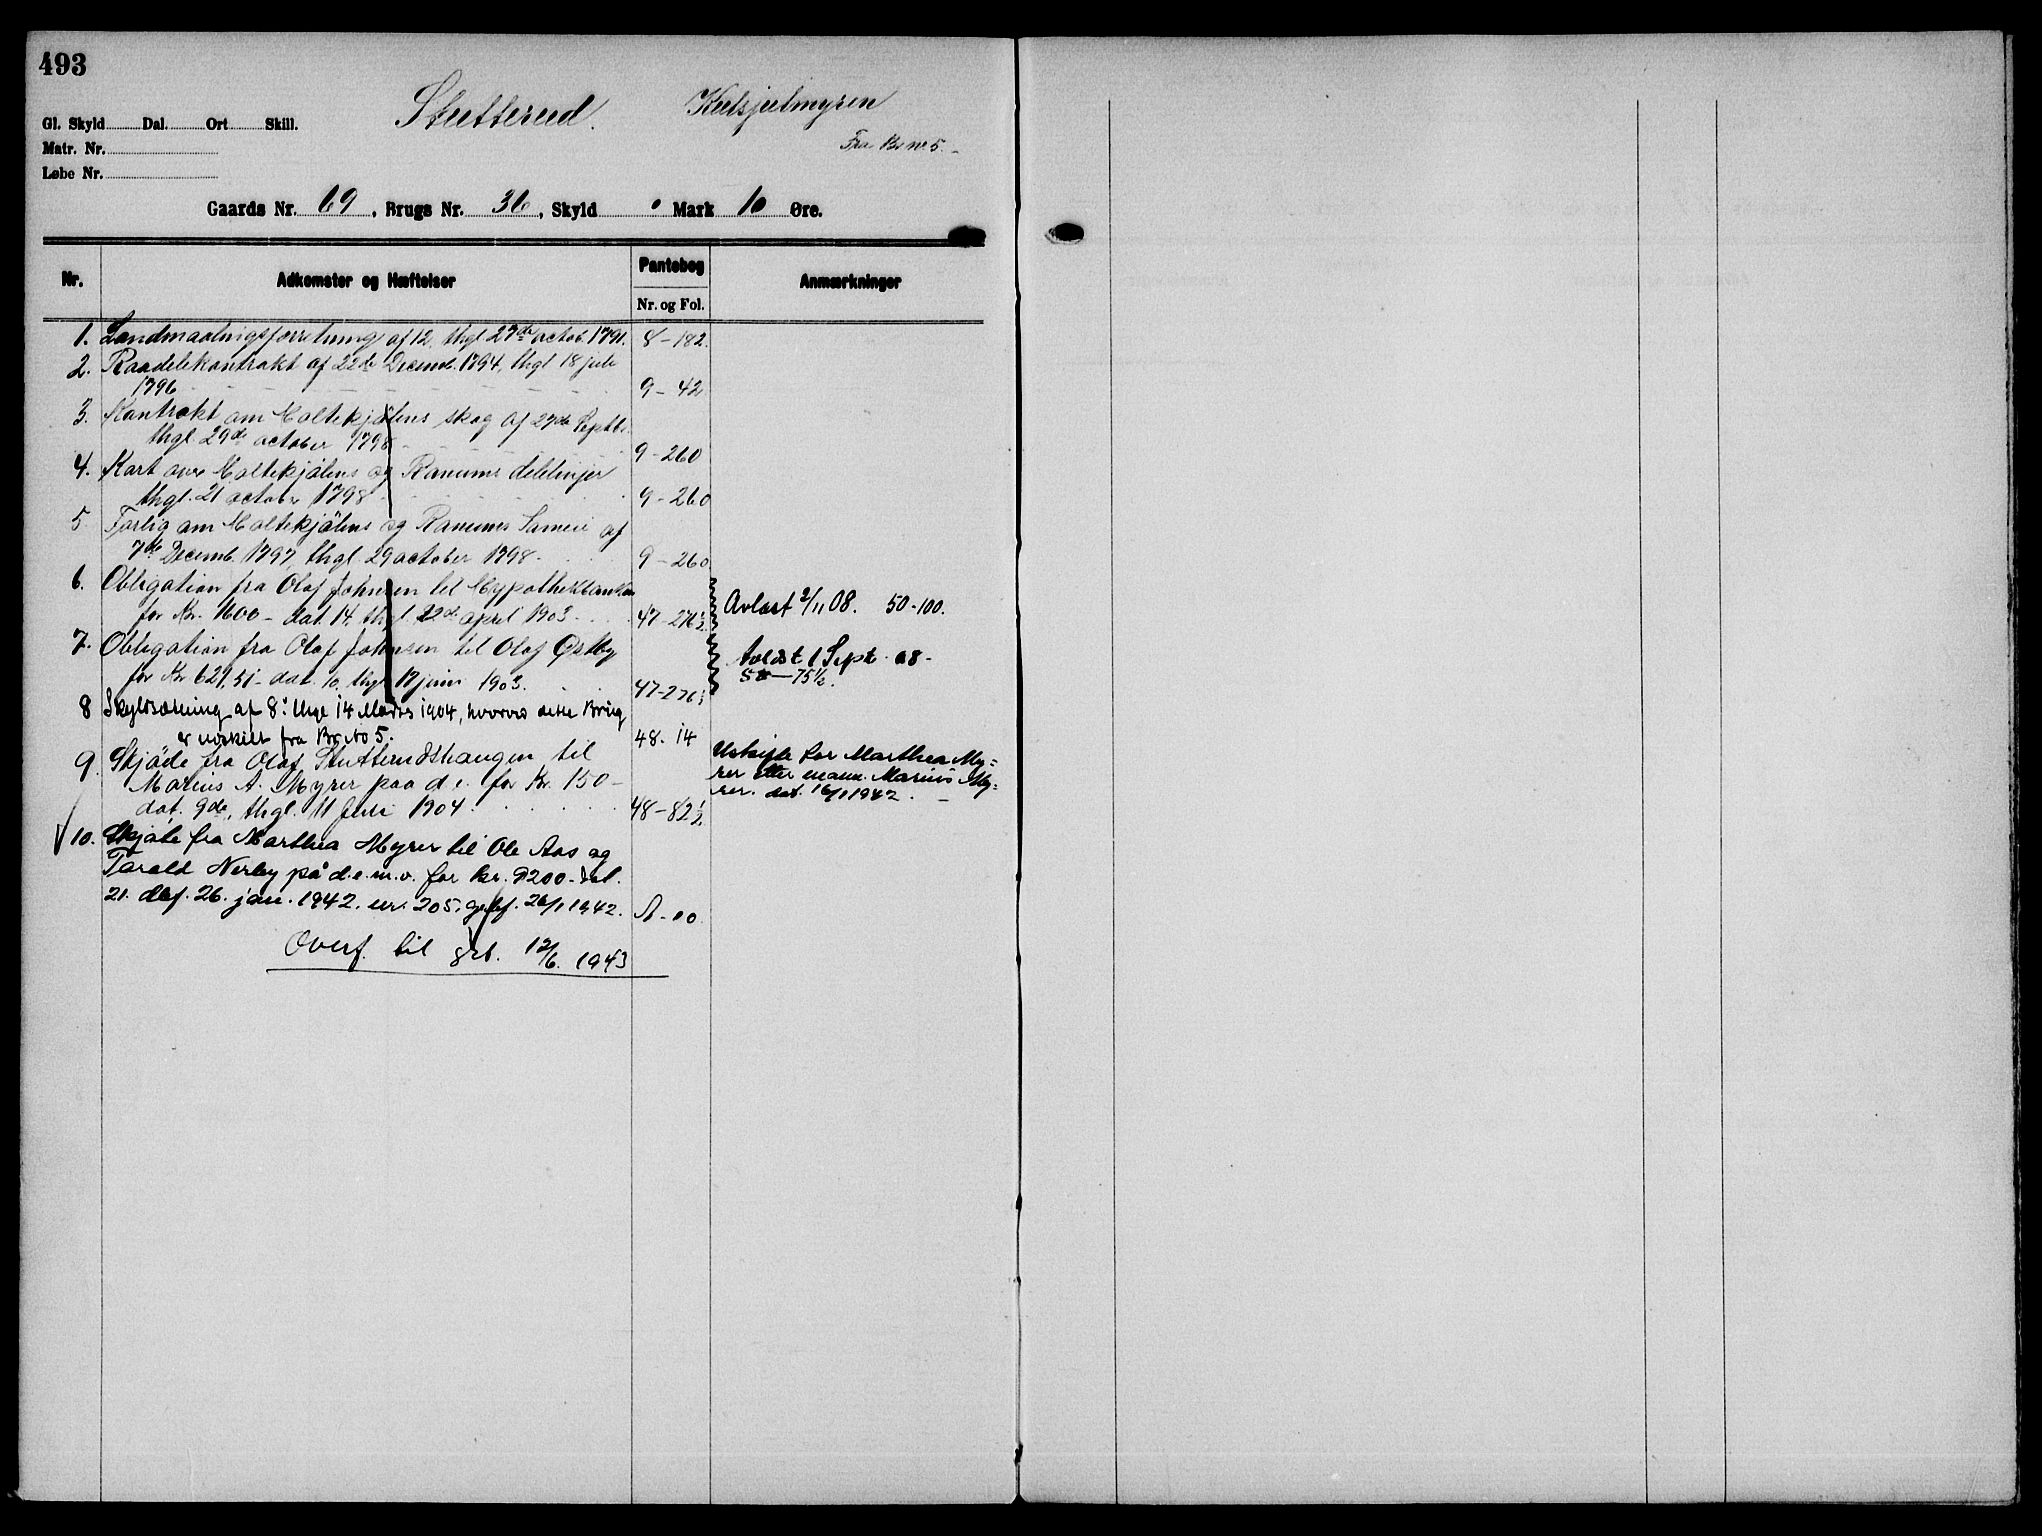 493
Stutterud. Kulsjulmyren
Fra Br nr. 5.
Gl. Skyld Dal. Ort Skill.
Matr. Nr.
Løbe Nr.
Gaards Nr. 69, Brugs Nr. 36, Skyld 0 Mark 10 Øre.
Nr. Adkomster og Hæftelser Pantebog Anmærkninger
Nr. og Fol.
1. Landmaalingsforretning af 12, thgl 27de octob. 1791. 8-182.
2. Raadelekontrakt af 22de Decemb. 1794, thgl 18 juli
1796 9-42
3. Kontrakt om Holtekjølens skog af 27de Septbr.
thgl 29de october 1798 9-260
4. Kart over Holtekjølens og Ranums delelinjer
thgl. 21 october 1798 9-260
5. Forlig om Holtekjølens og Ranums Sameie af
7de Decemb. 1797, thgl 29 october 1798. 9-260
6. Obligation fra Olaf Johnsen til Hypothekbanken
for Kr. 1600 - dat. 14, thgl. 22de april 1903. 47-276½ Avlæst 2/11 08. 50-100.
7. Obligation fra Olaf Johnsen til Olaf Østby
for Kr 621,51 - dat. 10, thgl 17 juni 1903. 47-276½ Avlæst 1 Sept. 08-
50-75½.
8 Skyldsætning af 8: thgl 14 Marts 1904, hvorved dette Brug
er udskilt fra Br No 5. 48-14
9. Skjøde fra Olaf Stutterudshaugen til
Marius A. Myrer paa d.e. for Kr. 150-
dat. 9de, thgl. 11 Juli 1904. 48-82½
Uskifte for Marthea My=
rer etter mann. Marius My=
rer. dat. 16/1 1942.
10. Skjøte fra Marthea Myrer til Ole Aas og
Tarald Nerby på d.e. m.v. for kr. 9200- dat.
21. dbf. 26. jan. 1942. nr. 205. gebf. 26/1 1942. A-10
Overf. til grb. 12/6. 1943